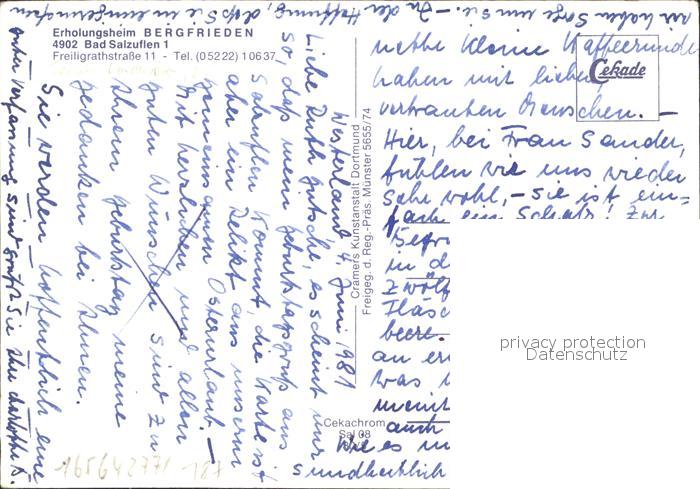 Erholungsheim BERGFRIEDEN
4902 Bad Salzuflen 1
Freiligrathstraße 11 - Tel. (05222) 10637
Cekade
Cramers Kunstanstalt Dortmund
Freigeg. d. Reg.-Präs. Münster 5655/74
Cekachrom
Sal 08
Westerland, 4. Juni 1981
Liebe Ruth, es scheint mir
so, daß mein Geburtstagsgruß aus
Salzuflen kommt, die Karte ist
aber ein Relikt aus unserm
gemeinsamen Osterurlaub. -
Mit herzlichen und allen
guten Wünschen sind zu
Ihrem Geburtstag meine
Gedanken bei Ihnen.
Sie werden hoffentlich eine
nette kleine Kaffeerunde
haben mit lieben,
vertrauten Menschen. -
Hier, bei Frau Sander,
fühlen wir uns wieder
sehr wohl, - sie ist ein-
fach ein Schatz! Zur
in d
zwölf
Fläsc
beere.
an er
was
meint
auch
Wie es
sundheitlich
wir haben Sorge um sie. - In der Hoffnung, daß Sie in
guter Verfassung sind, grüßt Sie Ihre
165642771 187
privacy protection
Datenschutz